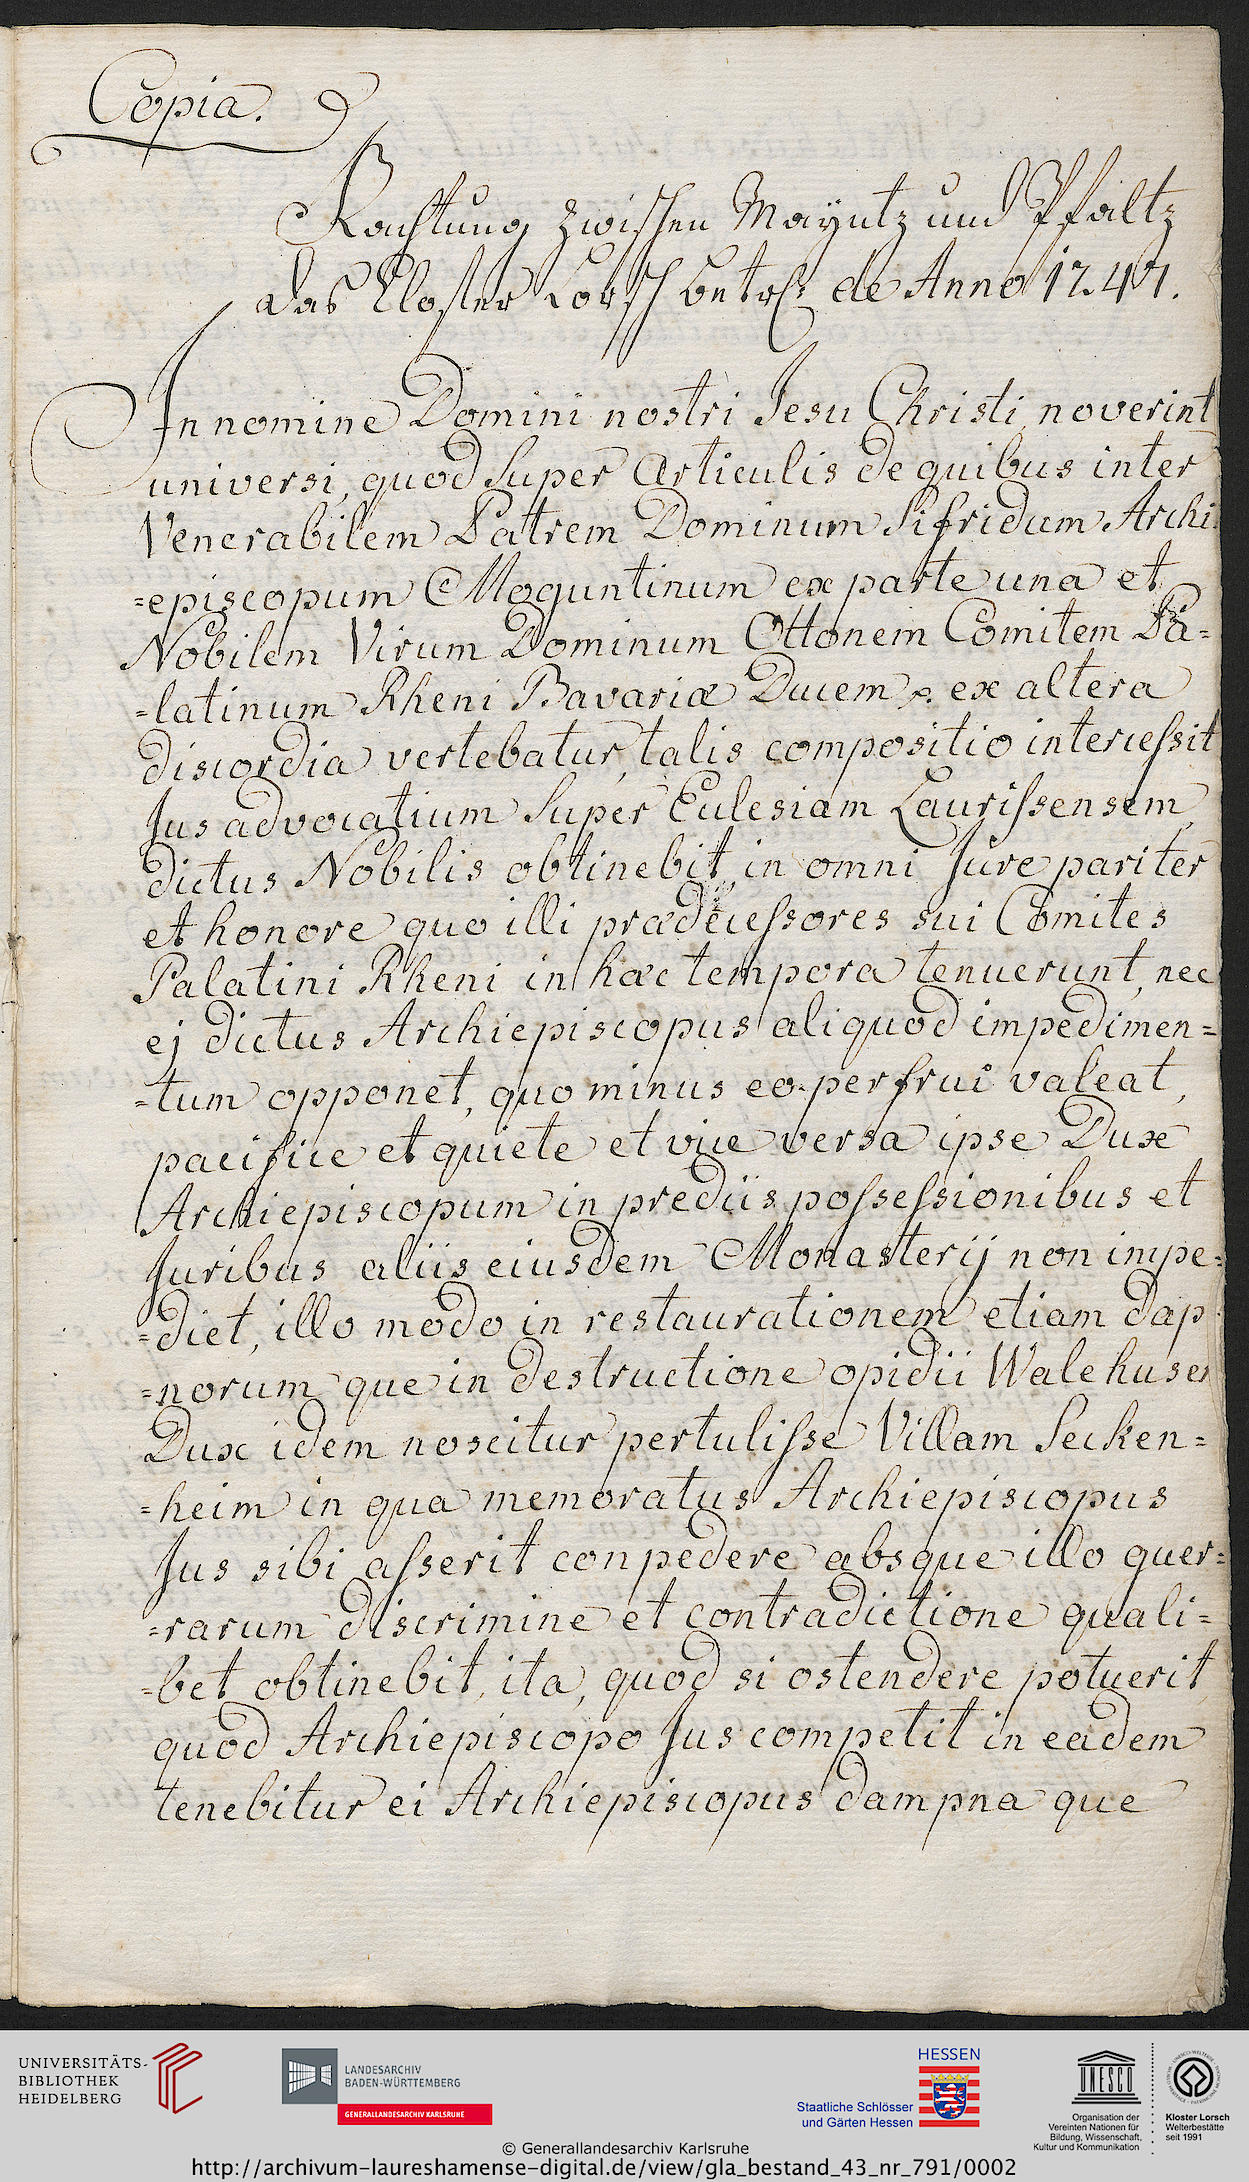 Copia.
Rachtung zwischen Mayntz und Pfaltz
das Closter Lorsch betrf: de Anno 1247.
In nomine Domini nostri Jesu Christi, noverint
universi, quod super articulis de quibus inter
Venerabilem Patrem Dominum Sifridum Archi
=episcopum Moguntinum ex parte una et
Nobilem Virum Dominum Ottonem Comitem Pa=
=latinum Rheni Bavariæ Ducem p. ex altera
discordia vertebatur, talis compositio intercessit
Jus advocatium super Eclesiam Laurissensem,
dictus Nobilis obtinebit, in omni Jure pariter
et honore quo illi prædecessores sui Comites
Palatini Rheni in hæc tempora tenuerunt, nec
ej dictus Archiepiscopus aliquod impedimen=
=tum opponet, quo minus eo perfrui valeat,
pacifice et quiete et vice versa ipse Dux
Archiepiscopum in prediis possessionibus et
Juribus aliis eiusdem Monasterij non impe=
=diet, illo modo in restaurationem etiam dap
=norum que in destructione opidii Walehusen
Dux idem noscitur pertulisse Villam Secken=
=heim in qua memoratus Archiepiscopus
Jus sibi asserit conpedere absque illo quer=
=rarum discrimine et contradictione quali=
=bet obtinebit, ita, quod si ostendere potuerit,
quod Archiepiscopo Jus competit in eadem
tenebitur ei Archiepiscopus dampna que
UNIVERSITÄTS-
BIBLIOTHEK
HEIDELBERG
LANDESARCHIV
BADEN-WÜRTTEMBERG
GENERALLANDESARCHIV KARLSRUHE
HESSEN
Staatliche Schlösser
und Gärten Hessen
UNESCO
Organisation der
Vereinten Nationen für
Bildung, Wissenschaft,
Kultur und Kommunikation
Kloster Lorsch
Welterbestätte
seit 1991
© Generallandesarchiv Karlsruhe
http://archivum-laureshamense-digital.de/view/gla_bestand_43_nr_791/0002